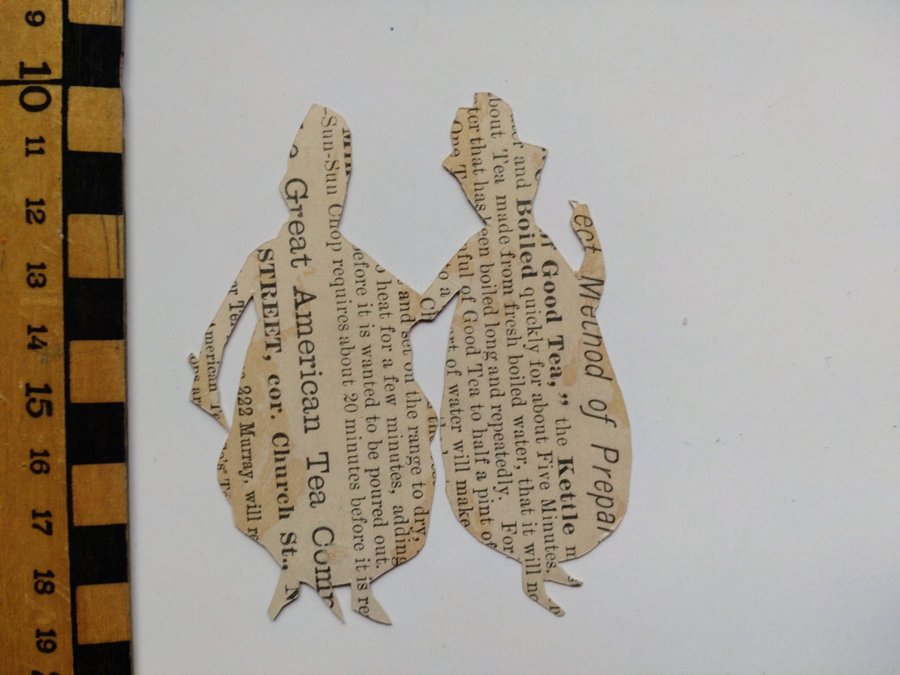 9
10
11
12
13
14
15
16
17
18
19
ect Method of Prepar
f Good Tea,” the Kettle
r and Boiled quickly for about Five Minutes.
bout Tea made from fresh boiled water, that it will no
ter that has een boiled long and repeatedly. For
One T ful of Good Tea to half a pint of
o a art of water will make
Ch
and set on the range to dry,
heat for a few minutes, adding
efore it is wanted to be poured out.
-Sun-Sun Chop requires about 20 minutes before it is re
e Great American Tea Comp
STREET, cor. Church St., N
222 Murray, will re
or Te
American Te